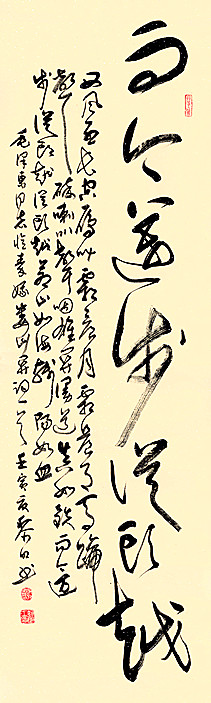 而今邁步從頭越
西風烈長空雁叫霜晨月霜晨月馬蹄
聲碎喇叭聲咽雄關漫道真如鐵而今邁
步從頭越從頭越蒼山如海殘陽如血
毛澤東同志憶秦娥婁山關詞一首壬寅